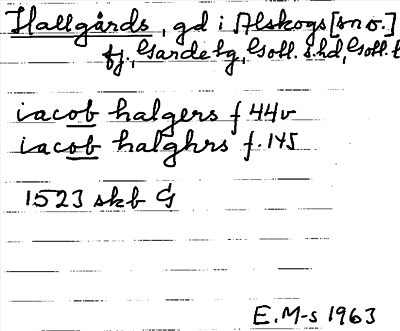 Hallgårds, gd i Alskogs [sn o.]
tj., Garde tg, Gotl. s. hd, Gotl. l
iacob halgers f 44v
iacob halghrs f. 145
1523 skb G
E. M-s 1963